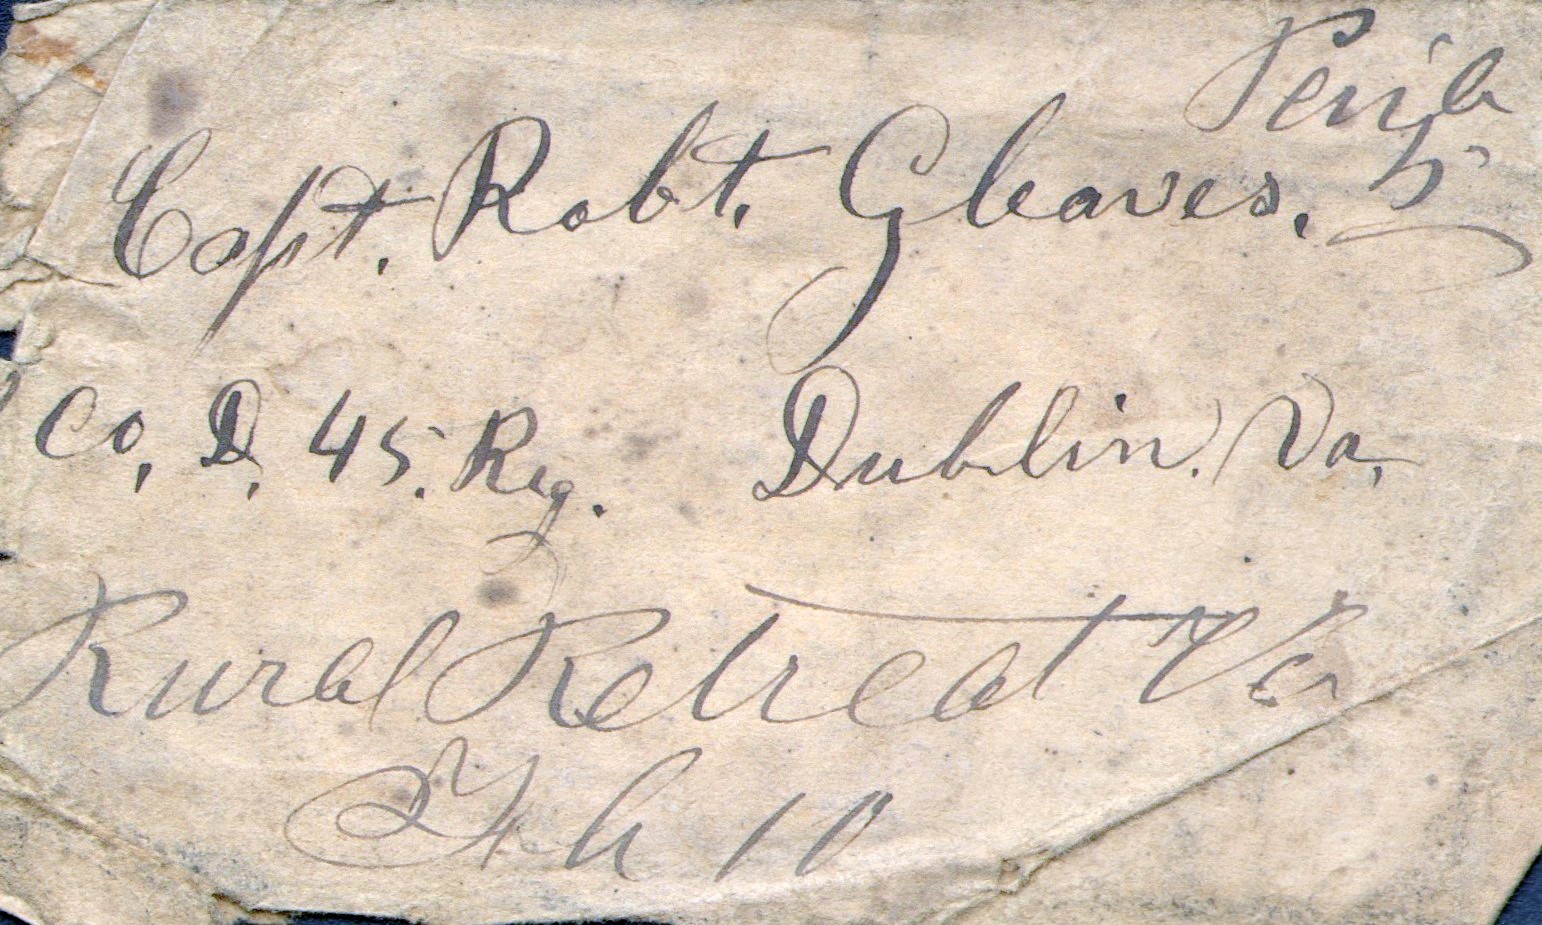 Paid
5
Capt. Robt. Gleaves.
Co, D, 45. Reg. Dublin. Va,
Rural Retreat Va
Feb 10